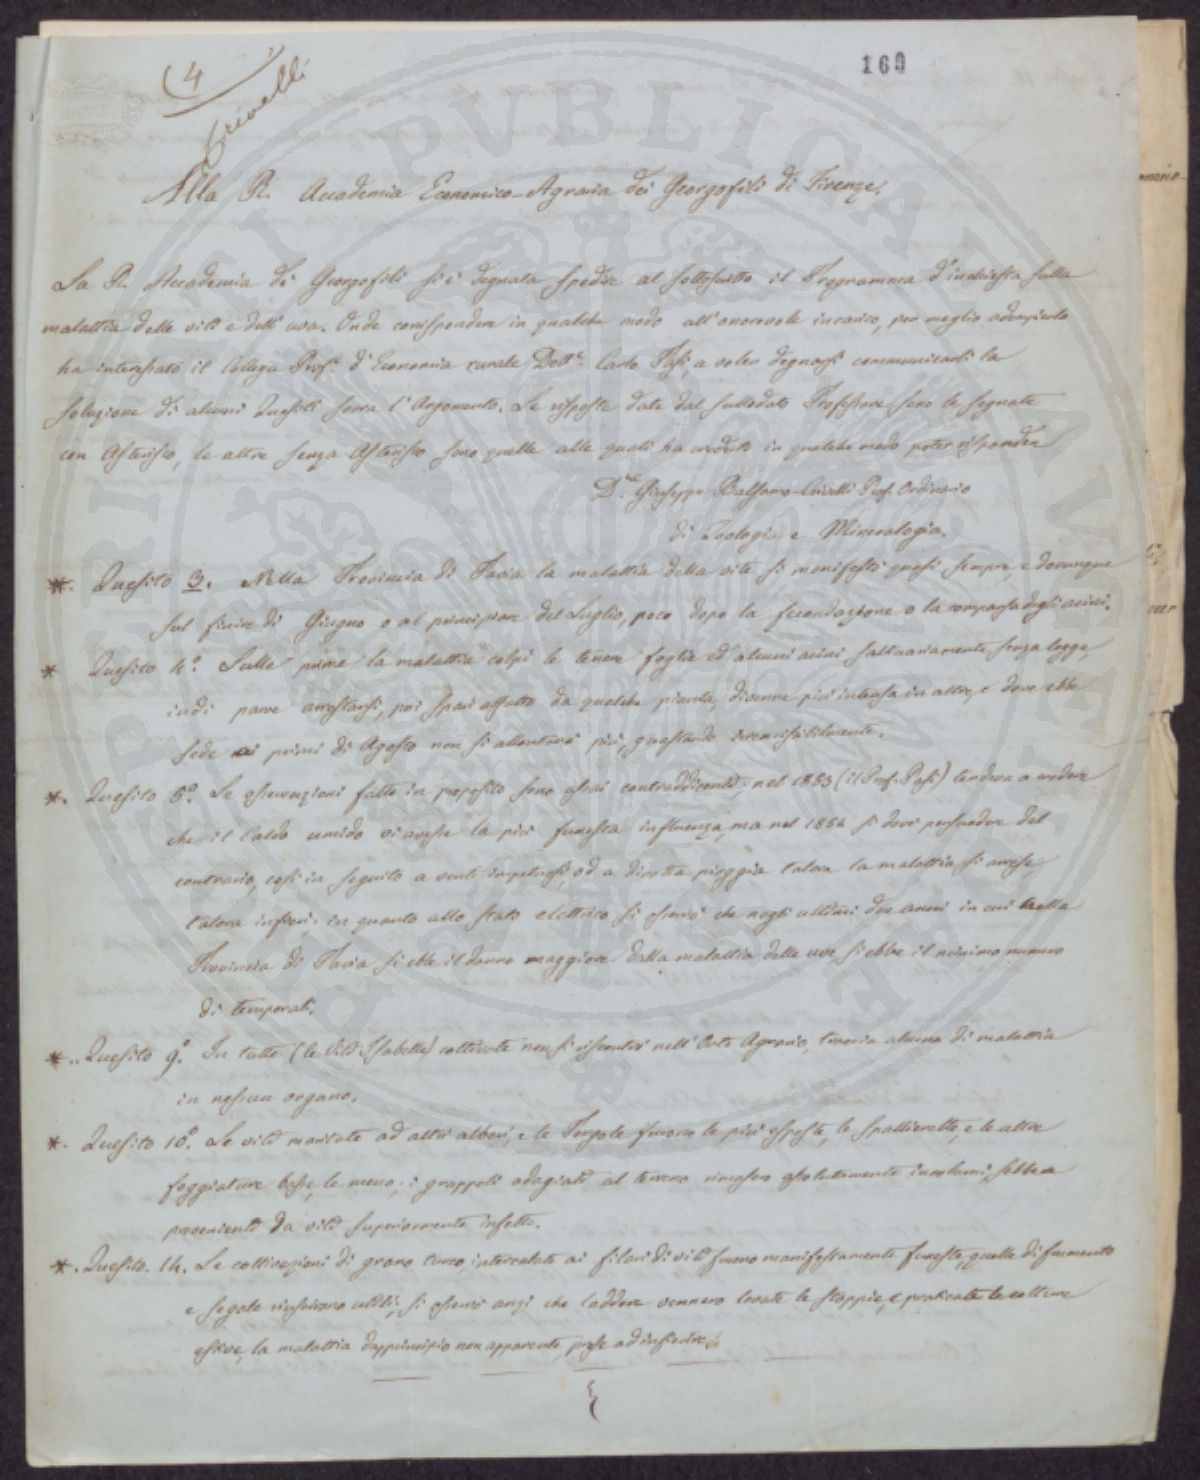 (4
Crivelli
160
Alla R. Accademia Economico-Agraria dei Georgofili di Firenze.
La R. Accademia de' Georgofili si è degnata spedire al sottoscritto il Programma d'inchiesta sulla
malattia delle viti e dell'uva. Onde corrispondere in qualche modo all'onorevole incarico, per meglio adempierlo
ha interessato il Collega Prof.e d'Economia rurale Dott.e Carlo Pasi a voler degnarsi communicarli la
soluzione di alcuni Quesiti sovra l'Argomento. Le risposte date dal sullodato Professore sono le segnate
con Asterisco, le altre senza Asterisco sono quelle alle quali ha creduto in qualche modo poter rispondere
D.re Giuseppe Balsamo-Crivelli Prof. Ordinario
di Zoologia e Mineralogia.
*. Quesito 3. Nella Provincia di Pavia la malattia della vite si manifestò quasi sempre, e dovunque
sul finire di Giugno o al principiare del Luglio, poco dopo la fecondazione o la comparsa degli acini.
* Quesito 4.° Sulle prime la malattia colpì le tenere foglie ed alcuni acini saltuariamente senza legge,
indi parve arrestarsi, poi sparì affatto da qualche pianta, divenne più intensa in altre, e dove ebbe
sede ai primi di Agosto non si allontanò più, guastando irremissibilmente.
*. Quesito 5.° Le osservazioni fatte in proposito sono assai contraddicenti; nel 1853 (il Prof. Pasi) tendeva a credere
che il Caldo umido vi avesse la più funesta influenza, ma nel 1854 si dovè persuadere del
contrario, così in seguito a venti impetuosi, od a dirotta pioggia talora la malattia si arrese,
talora infierì; in quanto allo stato elettrico si osservò che negli ultimi due anni in cui nella
Provincia di Pavia si ebbe il danno maggiore dalla malattia delle uve si ebbe il minimo numero
di temporali.
*.. Quesito 9.° In tutte (le Viti Isabelle) coltivate non si riscontrò nell'Orto Agrario, traccia alcuna di malattia
in nessun organo.
*. Quesito 10.° Le viti maritate ad altri alberi, e le Pergole furono le più esposte, le spallierette, e le altre
foggiature basse, le meno; i grappoli adagiati al terreno rimasero assolutamente incolumi, sebbene
provenienti da viti superiormente infette.
*. Quesito. 14. Le coltivazioni di grano turco intercalate ai filari di viti furono manifestamente funeste, quelle di frumento
e segale riuscirono utili; si osservò anzi che laddove vennero levate le stoppie, e praticate le colture
estive, la malattia dapprincipio non apparente, prese ad infierire.